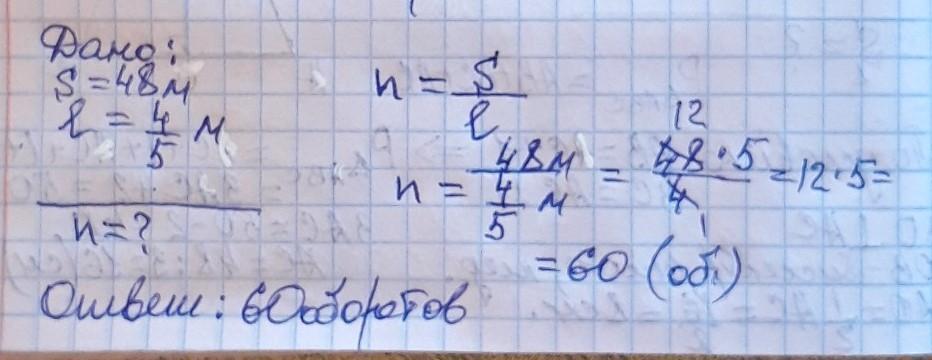 Дано:
S = 48 м
l = 4/5 м
n = ?
n = S/l
n = 48 м / 4/5 м = 48 · 5 / 4 = 12 · 5 =
12
1
= 60 (об.)
Ответ: 60 оборотов